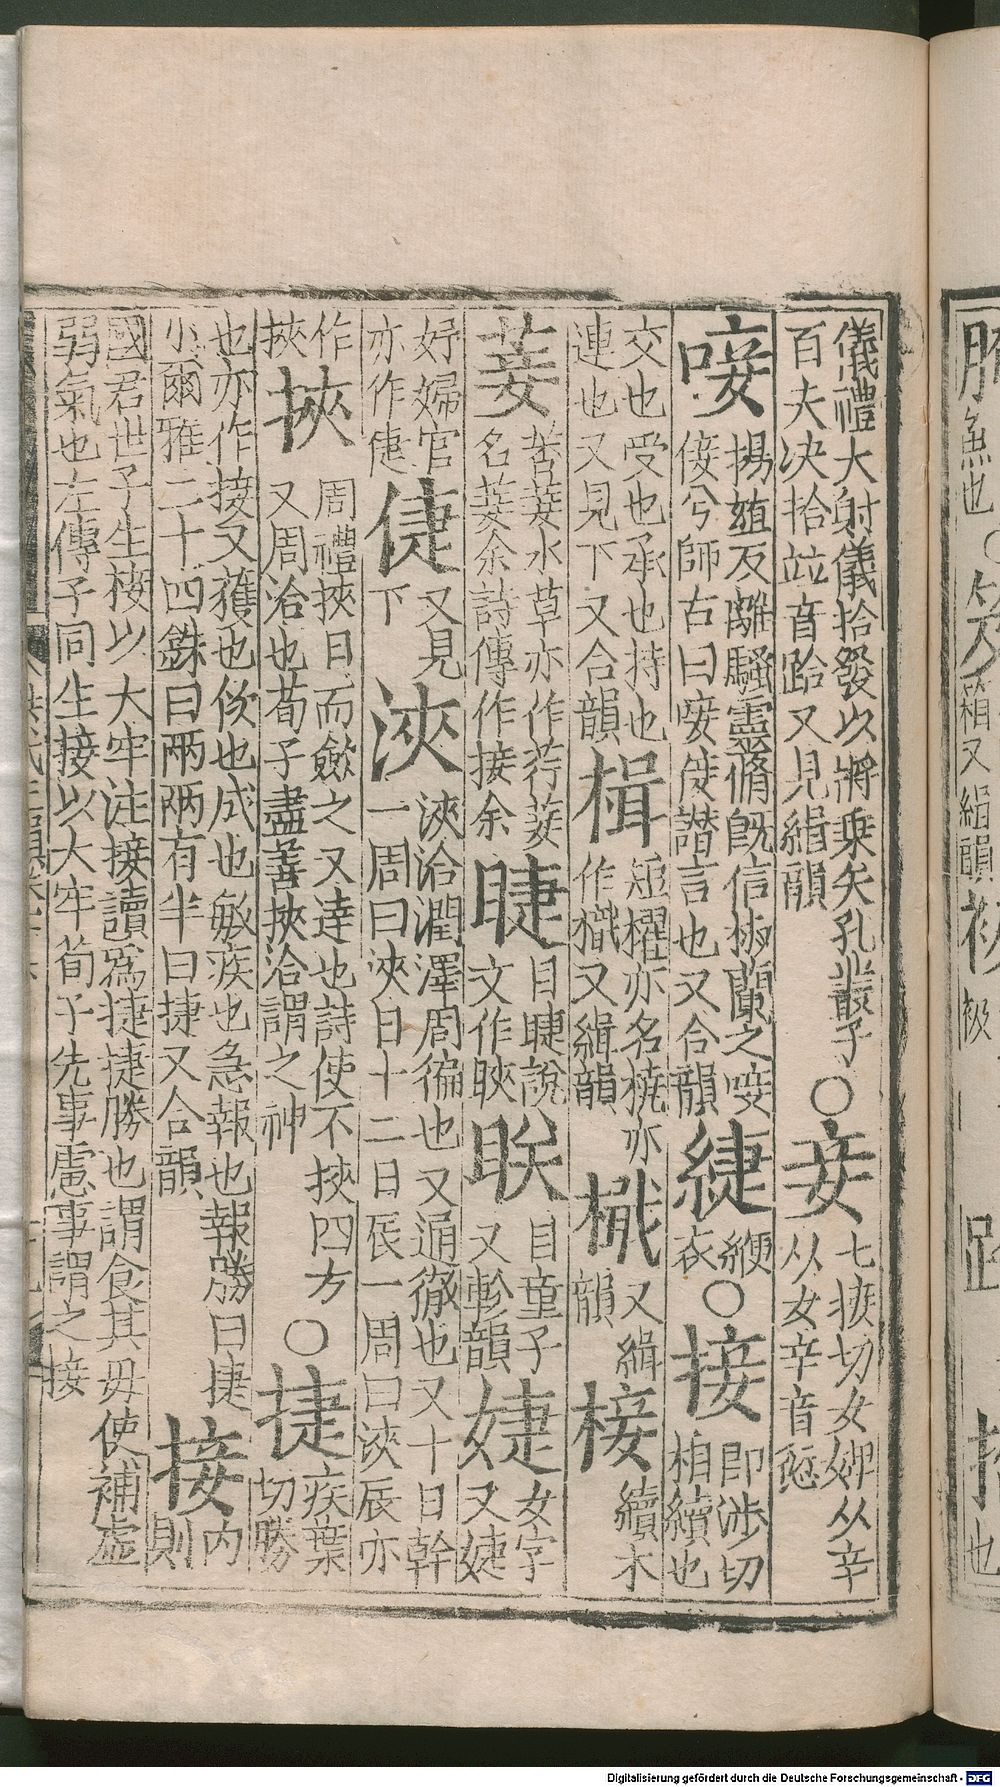 儀禮大射儀拾發以將乘矢孔叢子〇妾七接切女嬶从辛
百夫決拾竝音跲又見緝韻从女辛音愆
唼揚殖反離騷靈脩旣信椒蘭之唼緁緶〇接即渉切
倿兮師古曰唼倿譖言也又合韻衣相續也
交也受也承也持也楫短櫂亦名橈亦檝又緝椄續木
連也又見下又合韻作檝又緝韻韻
菨苦菨水草亦作荇菨睫目睫說䀹目童子婕女字
名菨余詩傳作接余文作䀹又軫韻又婕
妤婦官倢又見浹浹洽潤澤周徧也又通徹也又十日幹
亦作倢下一周曰浹日十二日辰一周曰浹辰亦
作挾周禮挾日而斂之又達也詩使不挾四方〇捷疾葉
挾又周洽也荀子盡善挾洽謂之神切勝
也亦作接又獲也佽也成也敏疾也急報也報勝曰捷接內
小爾雅二十四銖曰兩兩有半曰捷又合韻則
國君世子生椄以大牢注接讀爲捷捷勝也謂食其毋使補虛
弱氣也左傳子同生接以大牢荀子先事慮事謂之接
魚也〇
箱又緝韻
Digitalisierung gefördert durch die Deutsche Forschungsgemeinschaft - DFG